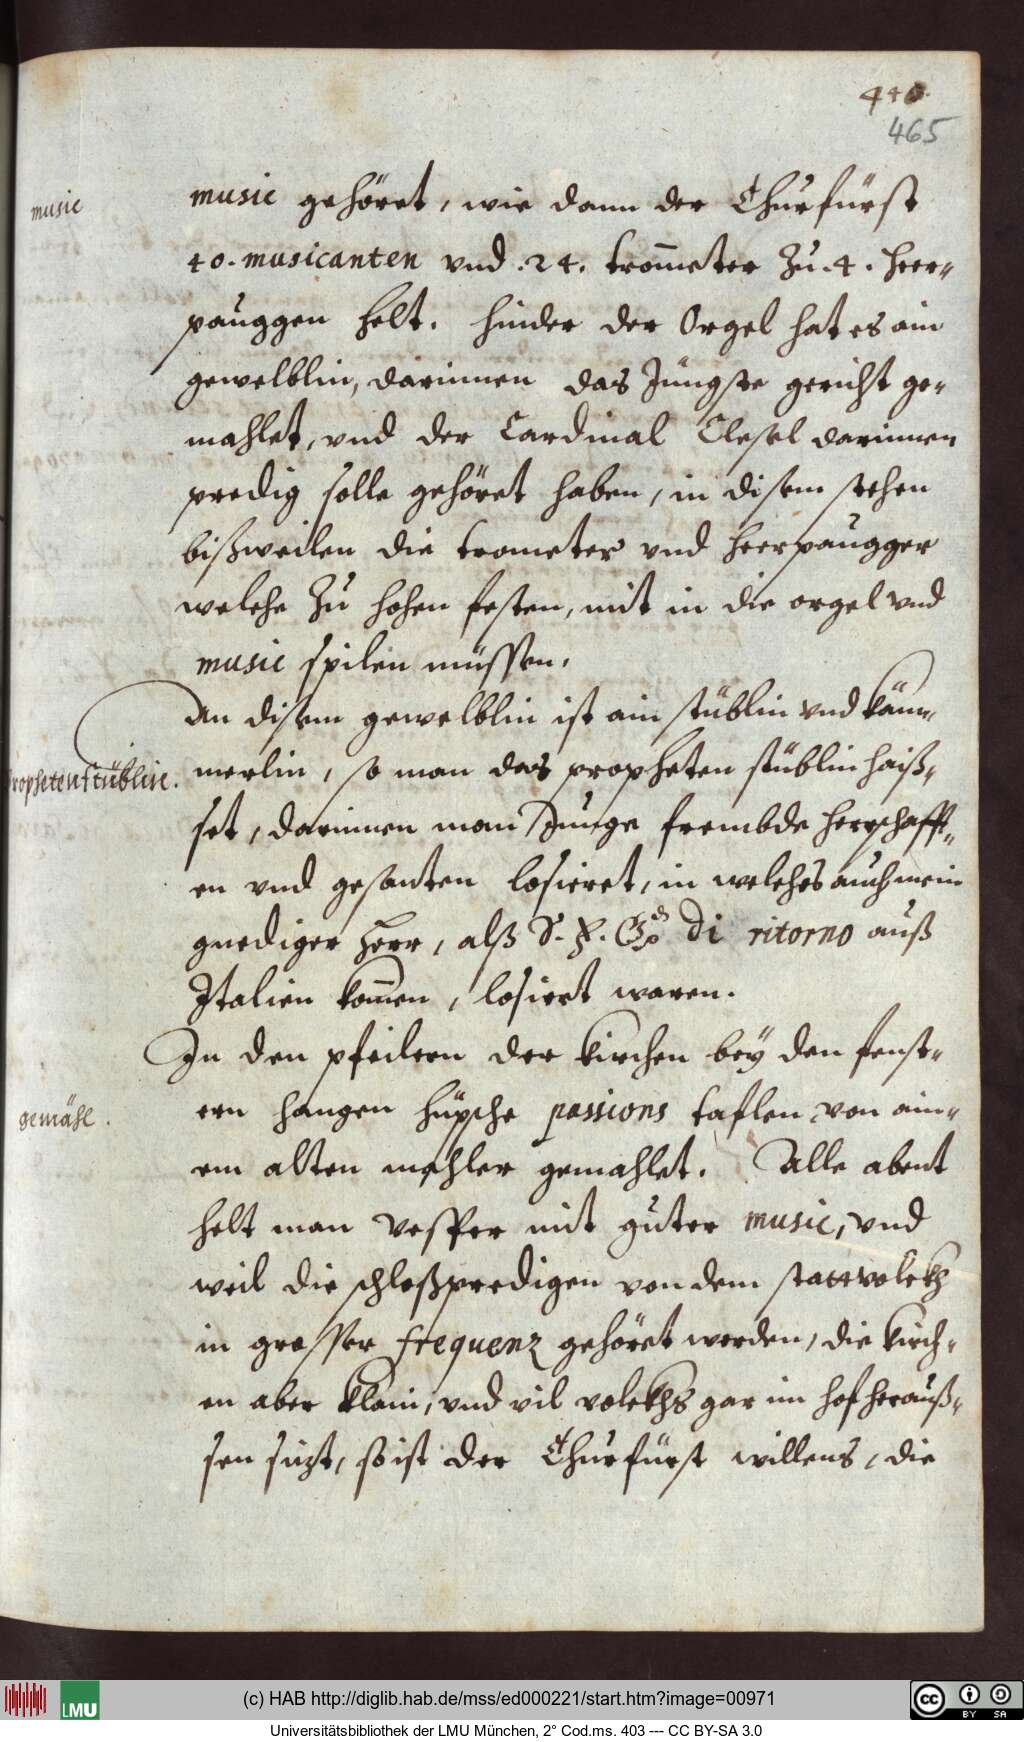 440.
465
music
music gehöret, wie dann der Churfürst
40. musicanten vnd .24. trom̄eter Zu .4. heer-
pauggen helt. hinder der Orgel hat es ain
gewelblin, darinnen das Jüngste gericht ge-
mahlet, vnd der Cardinal Clesel darinnen
predig solle gehöret haben, in disem stehen
bißweilen die trometer vnd heerpaugger
welche Zu hohen festen, mit in die orgel vnd
music spilen müssen.
An disem gewelblin ist ain stüblin vnd käm-
Prophetenstüblin.
merlin, so man das propheten stüblin haiß-
set, darinnen man Junge frembde herrschafft-
en vnd gesanten losieret, in welches auch mein
gnediger herr, alß S. F. Gn di ritorno auß
Italien kom̄en, losiert waren.
In den pfeilern der kirchen bey den fenst-
gemähl.
ern hangen hüpsche passions taflen von ain-
em alten mahler gemahlet. Alle abent
helt man vesper mit guter music, vnd
weil die schloßpredigen von dem stattvolckh
in grosser frequenz gehöret werden, die kirch-
en aber klain, vnd vil volckhs gar im hof herauß-
sen sizt, so ist der Churfürst willens, die
(c) HAB http://diglib.hab.de/mss/ed000221/start.htm?image=00971
LMU
cc BY SA
Universitätsbibliothek der LMU München, 2° Cod.ms. 403 --- CC BY-SA 3.0